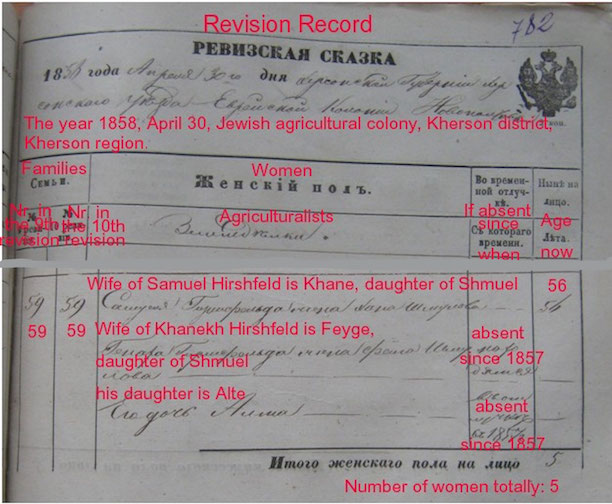 Revision Record
782
РЕВИЗСКАЯ СКАЗКА
1858 года Апреля 30го дня Херсонской Губернии Хер
сонскаго уезда Еврейской Колонии
The year 1858, April 30, Jewish agricultural colony, Kherson district,
Kherson region.
Families Women
Семьи. Женскій полъ. Во времен-ной отлуч-кѣ. Нынѣ на лицо.
Nr. in the 9th revision
Nr. in the 10th revision
Agriculturalists
Земледѣлки.
If absent since when
Съ котораго времени.
Age now
Лѣта.
Wife of Samuel Hirshfeld is Khane, daughter of Shmuel 56
59 59 Самуила Гиршфельда жена Хана Шмулова 56
59 59 Wife of Khanekh Hirshfeld is Feyge,
daughter of Shmuel
absent since 1857
Гиршфельда жена Фейга
his daughter is Alte
Его дочь
absent since 1857
Итого женскаго пола на лицо 5
Number of women totally: 5